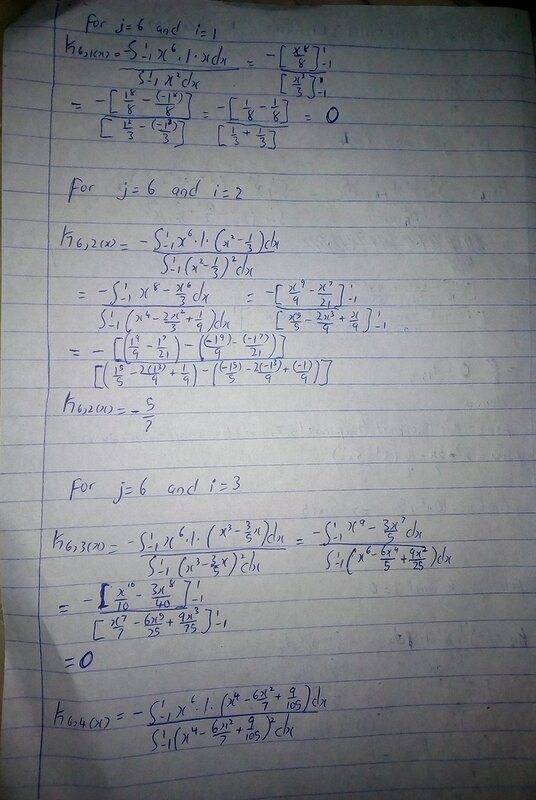 for j=6 and i=1
K6,1(x) = -∫₋₁¹ x⁶·1·x dx / ∫₋₁¹ x² dx = -[x⁸/8]₋₁¹ / [x³/3]₋₁¹
= -[1⁸/8 - (-1⁸)/8] / [1³/3 - (-1³)/3] = -[1/8 - 1/8] / [1/3 + 1/3] = 0
for j=6 and i=2
K6,2(x) = -∫₋₁¹ x⁶·1·(x² - 1/3) dx / ∫₋₁¹ (x² - 1/3)² dx
= -∫₋₁¹ x⁸ - x⁶/3 dx / ∫₋₁¹ (x⁴ - 2x²/3 + 1/9) dx = -[x⁹/9 - x⁷/21]₋₁¹ / [x⁵/5 - 2x³/9 + x/9]₋₁¹
= -[(1⁹/9 - 1⁷/21) - ((-1⁹)/9 - (-1⁷)/21)] / [(1⁵/5 - 2(1³)/9 + 1/9) - ((-1⁵)/5 - 2(-1³)/9 + (-1)/9)]
K6,2(x) = -5/7
for j=6 and i=3
K6,3(x) = -∫₋₁¹ x⁶·1·(x³ - 3/5 x) dx / ∫₋₁¹ (x³ - 3/5 x)² dx = -∫₋₁¹ x⁹ - 3x⁷/5 dx / ∫₋₁¹ (x⁶ - 6x⁴/5 + 9x²/25) dx
= -[x¹⁰/10 - 3x⁸/40]₋₁¹ / [x⁷/7 - 6x⁵/25 + 9x³/75]₋₁¹
= 0
K6,4(x) = -∫₋₁¹ x⁶·1·(x⁴ - 6x²/7 + 9/105) dx / ∫₋₁¹ (x⁴ - 6x²/7 + 9/105)² dx